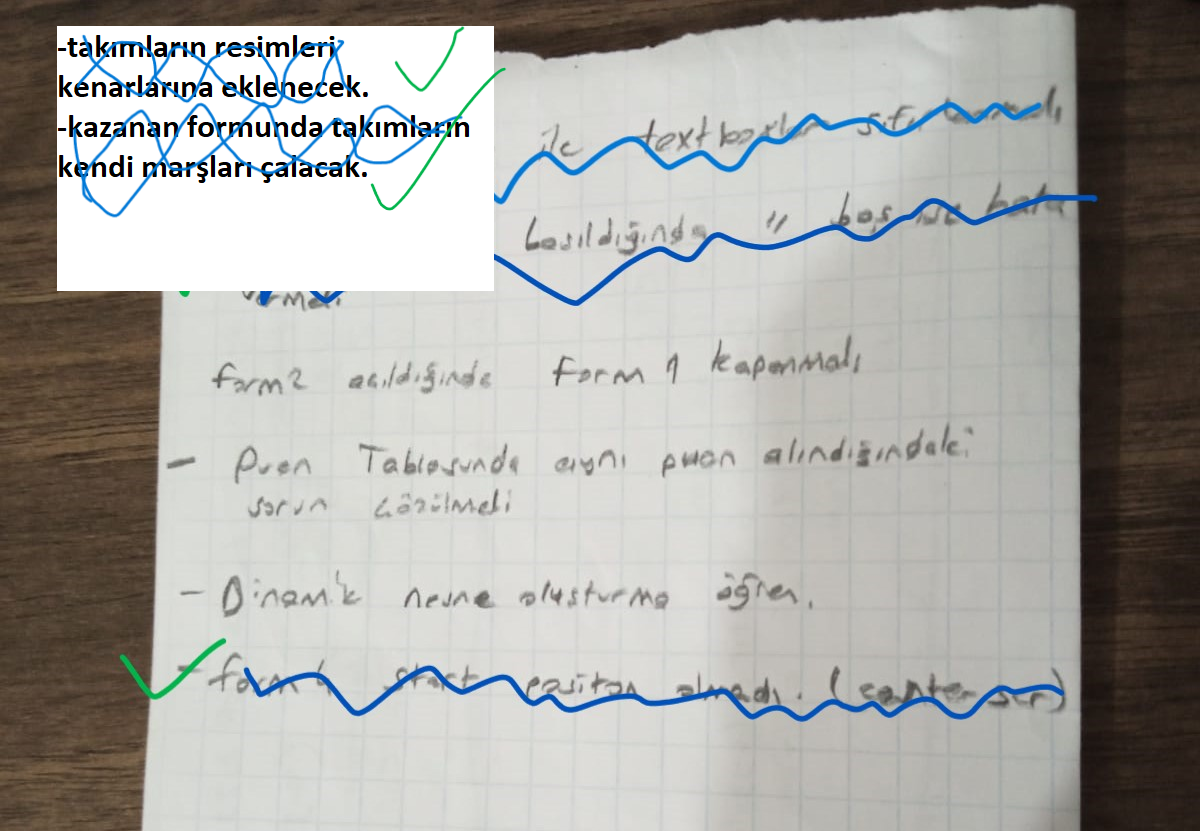 -takımların resimleri
kenarlarına eklenecek.
-kazanan formunda takımların
kendi marşları çalacak.
ile textboxlar
basıldığında " boş ise hata
form2 açıldığında form 1 kapanmalı
- Puan Tablosunda aynı puan alındığındaki
sorun çözülmeli
- Dinamik nesne oluşturma öğren.
- form 4 start positon olmadı. (center scr)